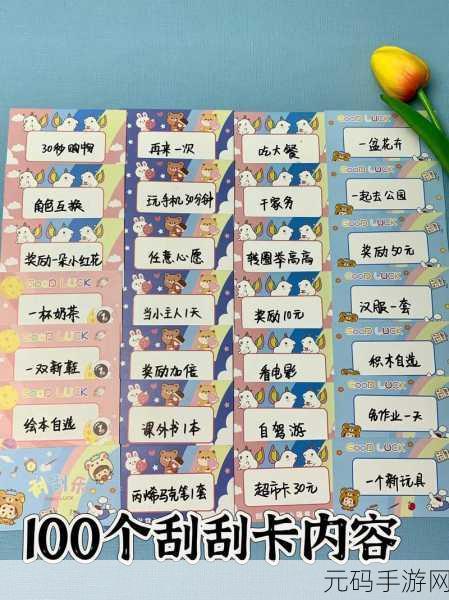 30秒购物
再来一次
吃大餐
GOOD LUCK
一盆花卉
角色互换
玩手机30分钟
干家务
GOOD LUCK
一起去公园
奖励一朵小红花
任意心愿
转圈举高高
GOOD LUCK
奖励50元
GOOD LUCK
一杯奶茶
当小主人1天
奖励10元
GOOD LUCK
汉服一套
GOOD LUCK
一双新鞋
奖励加倍
看电影
GOOD LUCK
积木自选
GOOD LUCK
绘本自选
课外书1本
自驾游
GOOD LUCK
免作业一天
刮刮乐
丙烯马克笔1套
超市卡30元
GOOD LUCK
一个新玩具
100个刮刮卡内容
元码手游网